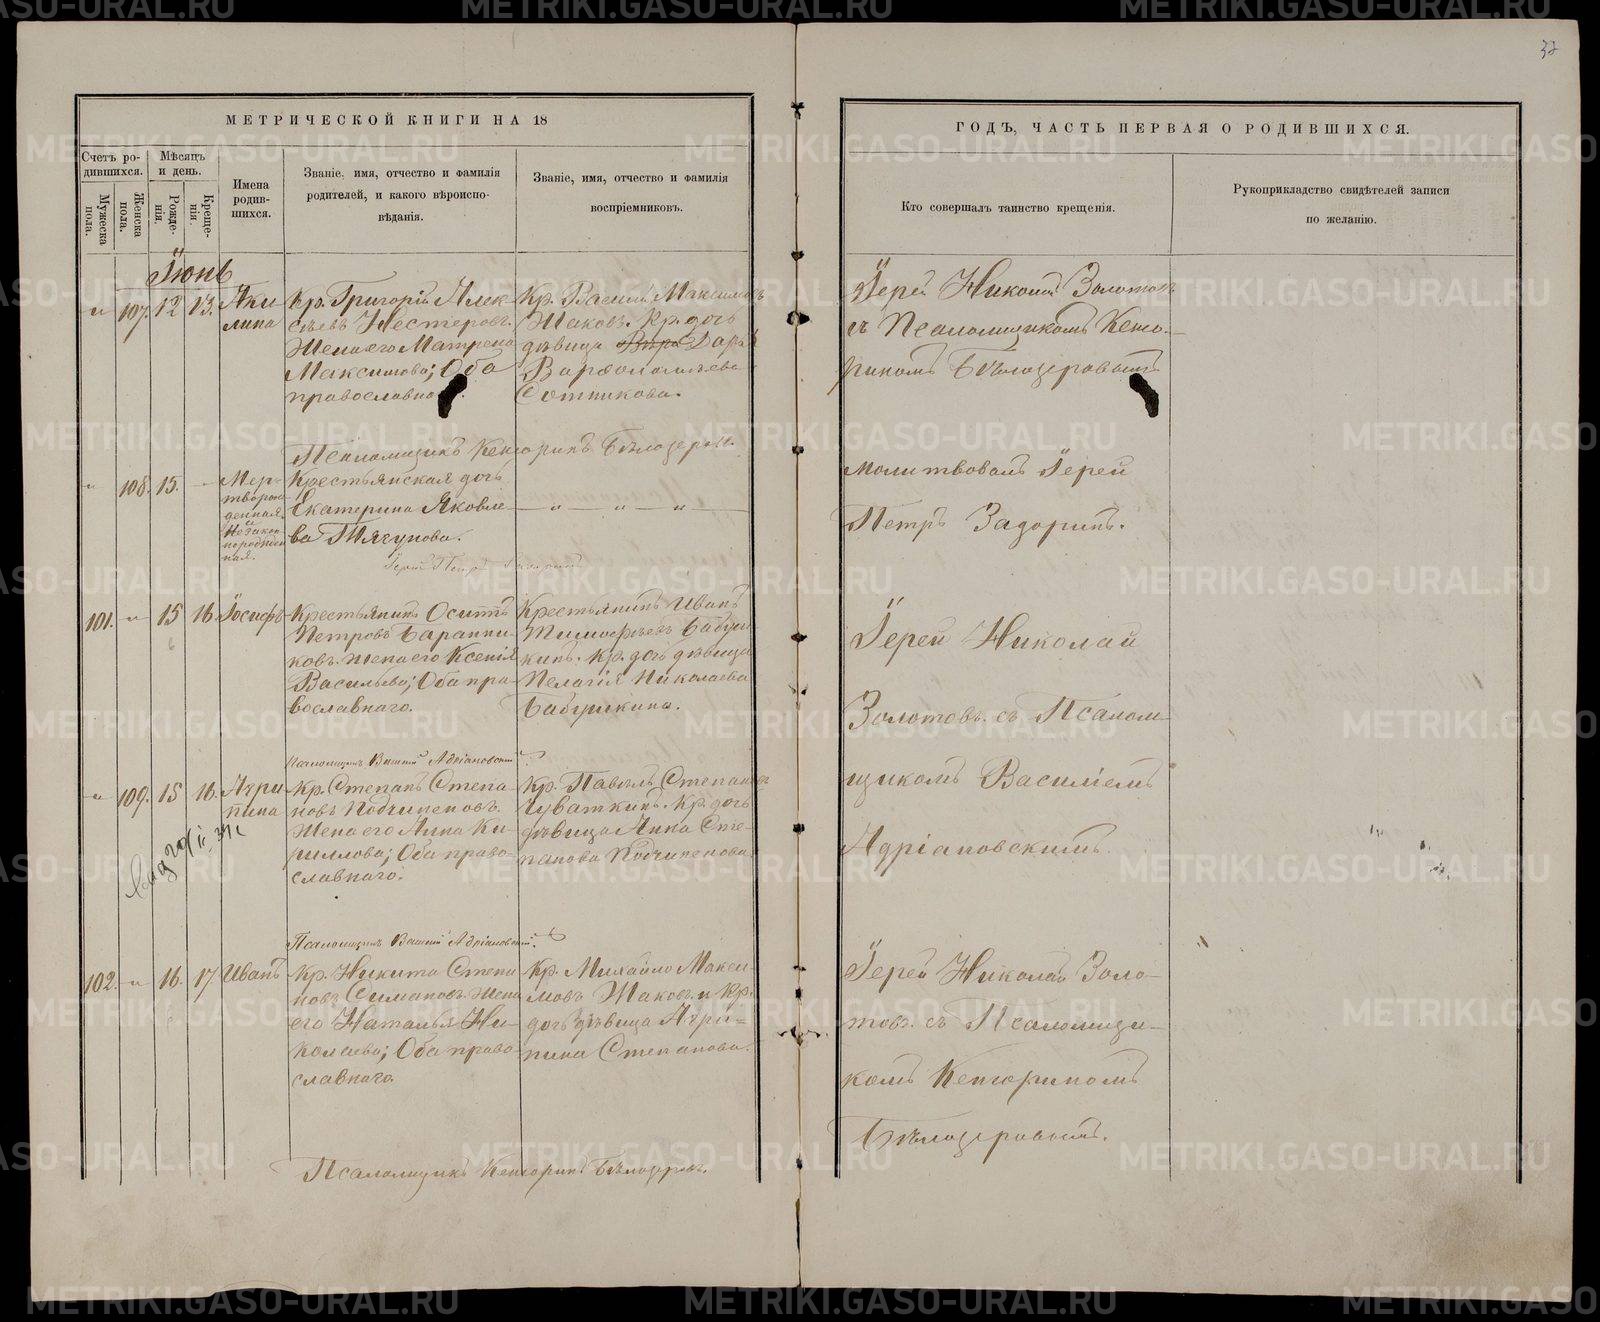 32
МЕТРИЧЕСКОЙ КНИГИ НА 18
ГОДЪ, ЧАСТЬ ПЕРВАЯ О РОДИВШИХСЯ.
Счетъ ро-
дившихся.
Мужеска пола.
Женска пола.
Мѣсяцъ
и день.
Рожде-
нія.
Креще-
нія.
Имена
родив-
шихся.
Званіе, имя, отчество и фамилія
родителей, и какого вѣроиспо-
вѣданія.
Званіе, имя, отчество и фамилія
воспріемниковъ.
Кто совершалъ таинство крещенія.
Рукоприкладство свидѣтелей записи
по желанію.
Іюнь
" 107. 12 13.
Аки
лина
Кр. Григорій Алек
сѣевъ Нестеровъ.
Жена его Матрена
Максимова; Оба
православна
Кр. Василій Максимовъ
Жаковъ. Кр. дочь
дѣвица Дарья
Варѳоломѣева
Сотникова.
Іерей Николай Золотовъ
съ Псаломщикомъ Кенso-
риномъ Бѣлозеровымъ
Псаломщикъ Кенсоринъ Бѣлозеровъ.
" 108. 15. —
Мер-
творож
денная
и
Незакон
норожден
ная.
Крестьянская дочь
Екатерина Яковле-
ва Тягунова.
— " — " — " —
молитвовалъ Іерей
Петръ Задоринъ.
Іерей Петръ Задоринъ
101. " 15 16.
Іосифъ
Крестьянинъ Осипъ
Петровъ Баранни-
ковъ. Жена его Ксенія
Васильева; Оба пра-
вославнаго.
Крестьянинъ Иванъ
Тимофѣевъ Бабуш
кинъ. Кр. дочь дѣвица
Пелагія Николаева
Бабушкина.
Іерей Николай
Золотовъ. съ Псалом-
щикомъ Василіемъ
Адріановскимъ.
Псаломщикъ Василій Адріановскій
" 109. 15 16.
Агри
пина
Кр. Степанъ Степа-
новъ Подчиненовъ.
Жена его Анна Ки-
риллова; Оба право-
славнаго.
Кр. Павелъ Степановъ
Чуваткинъ. Кр. дочь
дѣвица Анна Сте-
панова Подчиненова
Псаломщикъ Василій Адріановскій.
102. " 16. 17.
Иванъ
Кр. Никита Степа
новъ Симановъ. Жена
его Наталья Ни-
колаева; Оба право-
славнаго.
Кр. Михайло Макси-
мовъ Жаковъ. и Кр.
дочь дѣвица Агри-
пина Степанова.
Іерей Николай Золо-
товъ. съ Псаломщи-
комъ Кенсориномъ
Бѣлозеровымъ.
Псаломщикъ Кенсоринъ Бѣлозеровъ.
METRIKI.GASO-URAL.RU